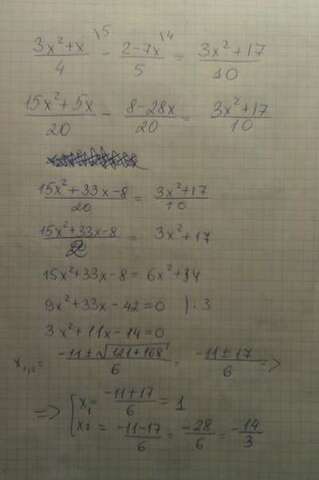 (3x²+x)/4 \5 - (2-7x)/5 \4 = (3x²+17)/10
(15x²+5x)/20 - (8-28x)/20 = (3x²+17)/10
(15x²+33x-8)/20 = (3x²+17)/10
(15x²+33x-8)/2 = 3x²+17
15x²+33x-8 = 6x²+34
9x²+33x-42=0 ) : 3
3x²+11x-14=0
x₁,₂ = (-11±√(121+168))/6 = (-11±17)/6 =>
=> { x₁ = (-11+17)/6 = 1
x₂ = (-11-17)/6 = -28/6 = -14/3